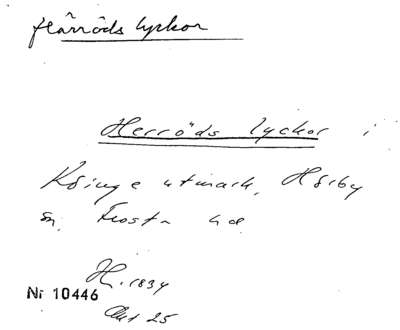 Härröds lyckor
Herröds lyckor i
Ksinge utmark, Hörby
sn, Frosta hd
H. 1834
Nr 10446
Akt 25